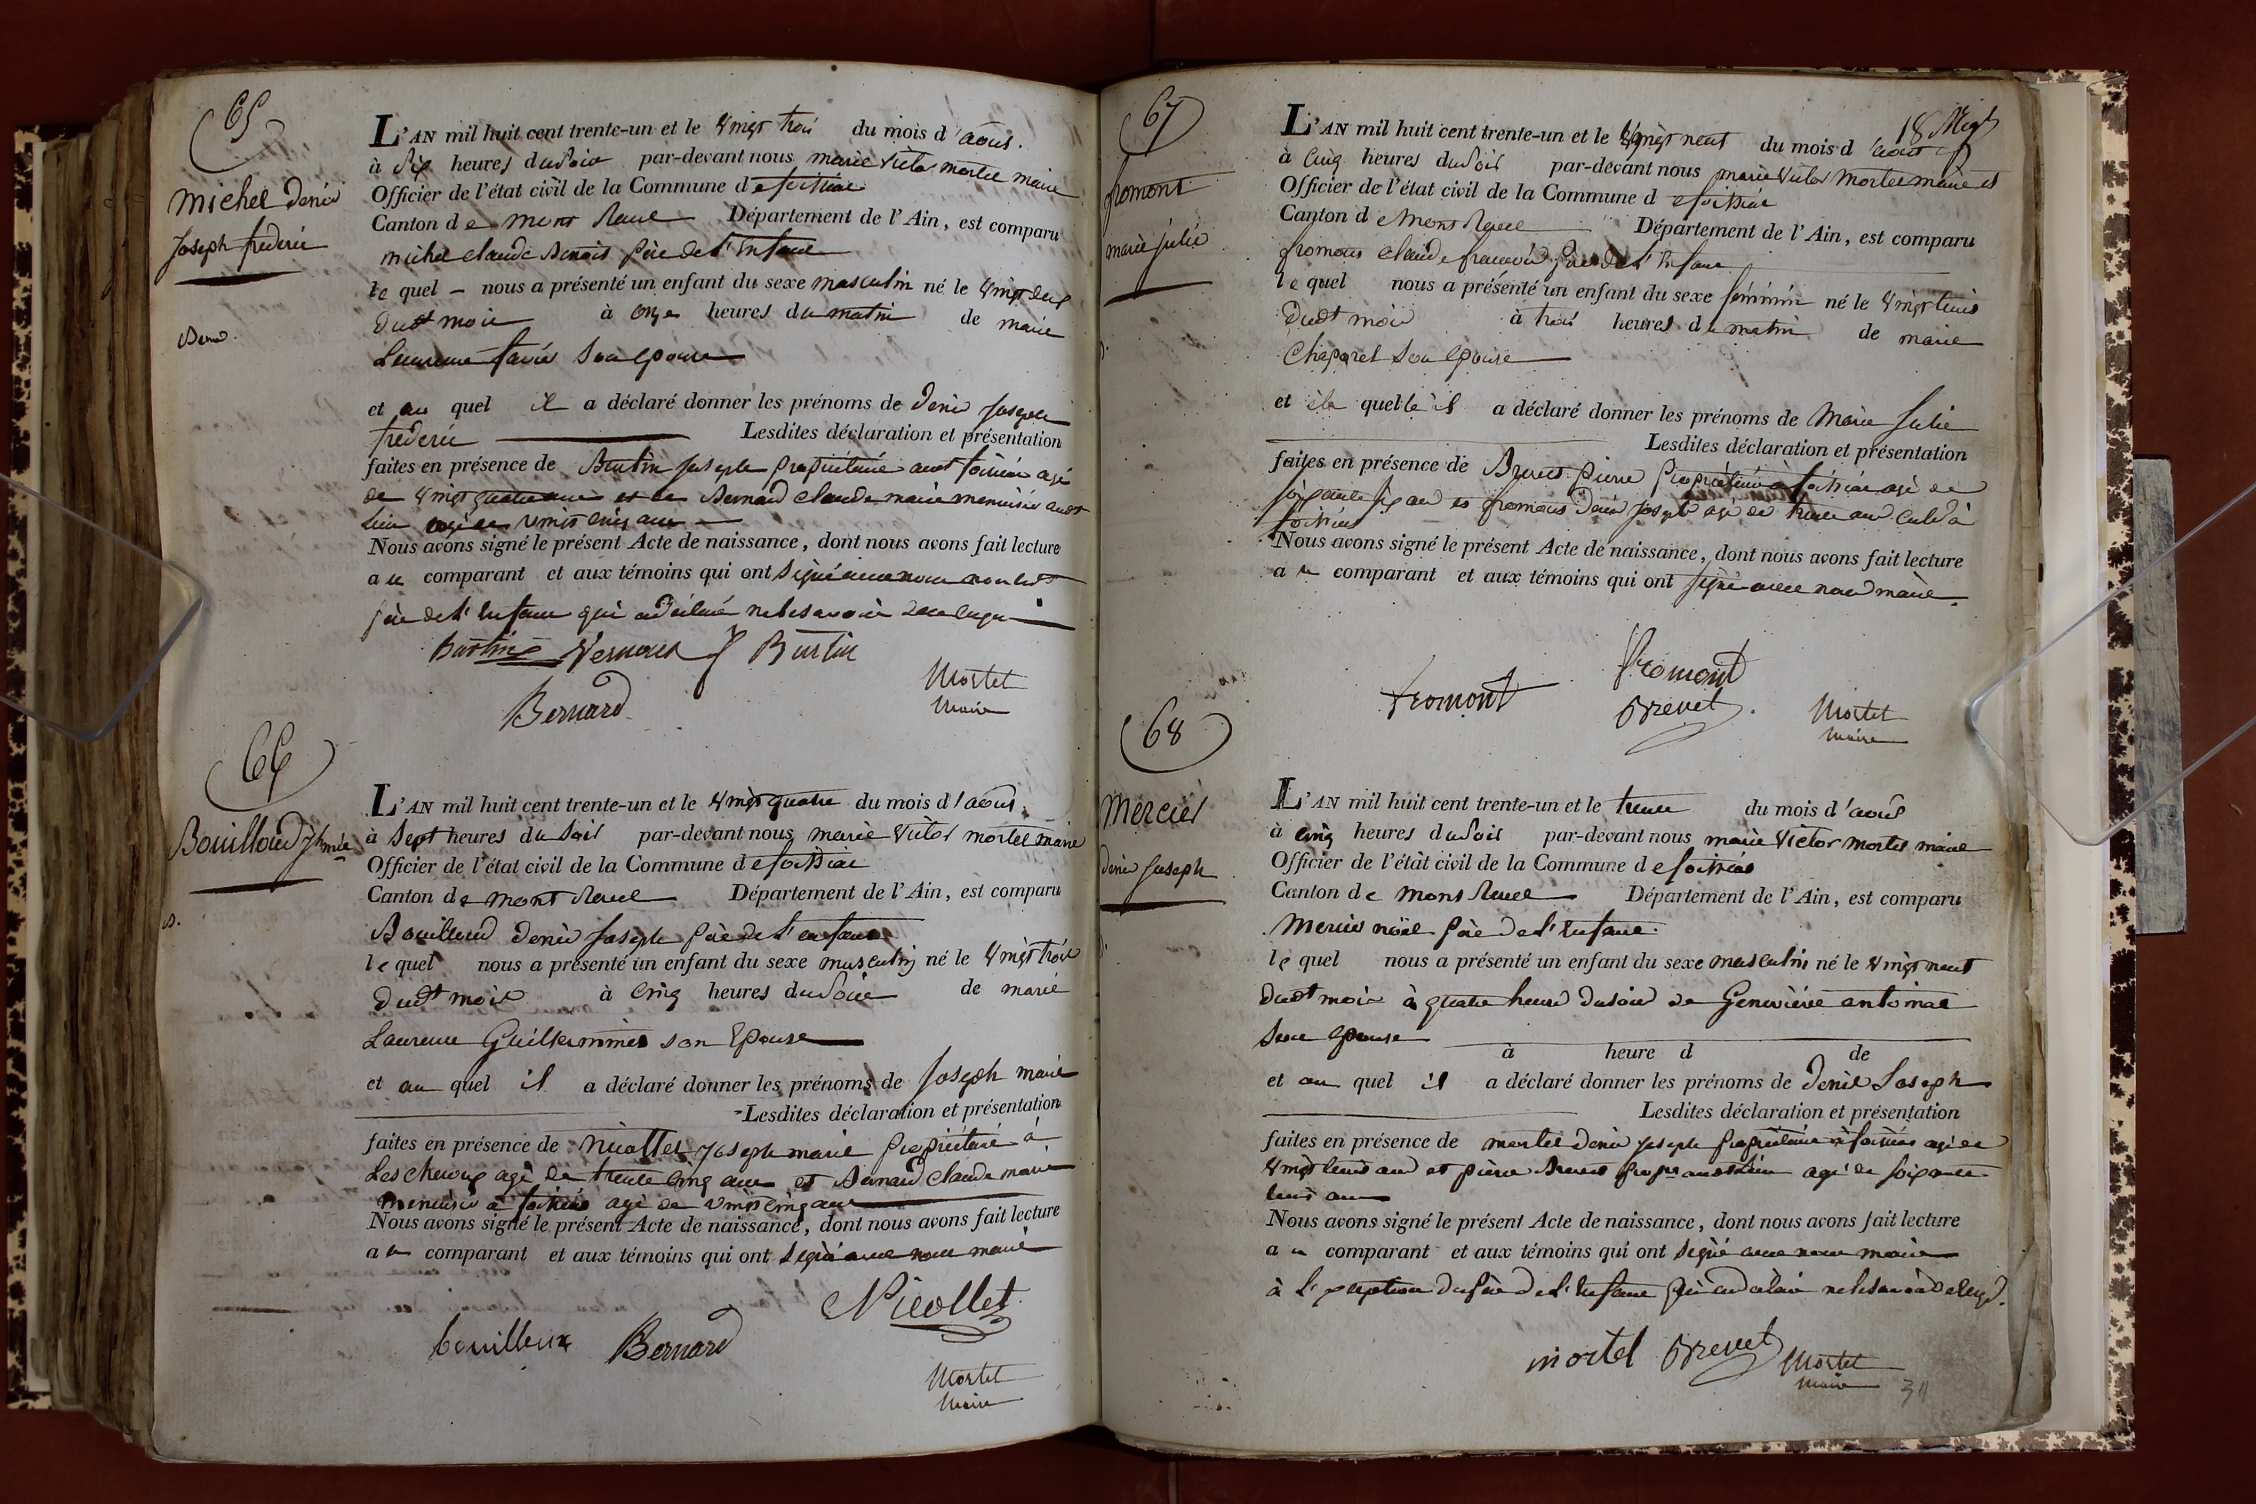 65
Michel Denis
Joseph frederic
L'AN mil huit cent trente-un et le vingt trois du mois d'aout.
à Six heures du soir par-devant nous marie victor mortel maire
Officier de l'état civil de la Commune de foissiat
Canton de mont Revel Département de l'Ain, est comparu
michel claude Benoit père de l'enfant
le quel - nous a présenté un enfant du sexe masculin né le vingt deux
dudt mois à onze heures du matin de marie
Laurence son épouse
et au quel il a déclaré donner les prénoms de denis Joseph
frederic Lesdites déclaration et présentation
faites en présence de Burtin Joseph propriétaire audt foissiat agé
de vingt quatre ans et de Bernard claude marie menuisier audt
lieu agé de vingt cinq ans
Nous avons signé le présent Acte de naissance, dont nous avons fait lecture
au comparant et aux témoins qui ont signé avec nous non led
père de l'enfant qui a déclaré ne le savoir
Burtin
Bernard
Mortel
Maire
66
Bouilloud Jh mie
L'AN mil huit cent trente-un et le vingt quatre du mois d'aout.
à sept heures du soir par-devant nous marie victor mortel maire
Officier de l'état civil de la Commune de foissiat
Canton de mont Revel Département de l'Ain, est comparu
Bouilloud denis Joseph père de l'enfant
le quel nous a présenté un enfant du sexe masculin né le vingt trois
dudt mois à cinq heures du soir de marie
Laurence Guillermin son épouse
et au quel il a déclaré donner les prénoms de Joseph marie
Lesdites déclaration et présentation
faites en présence de nicollet Joseph marie propriétaire à
Lescheroux agé de trente cinq ans et Bernard claude marie
menuisier à foissiat agé de vingt cinq ans
Nous avons signé le présent Acte de naissance, dont nous avons fait lecture
au comparant et aux témoins qui ont signé avec nous maire
Nicollet
bouilloux Bernard
Mortel
Maire
18
67
fromont
marie julie
L'AN mil huit cent trente-un et le vingt neuf du mois d'aout
à cinq heures du soir par-devant nous marie victor mortel maire et
Officier de l'état civil de la Commune de foissiat
Canton de Mont Revel Département de l'Ain, est comparu
fromont claude françois père de l'enfant
le quel nous a présenté un enfant du sexe féminin né le vingt huit
dudt mois à trois heures du matin de marie
Chaparel son épouse
et à la quelle il a déclaré donner les prénoms de Marie Julie
Lesdites déclaration et présentation
faites en présence de Brevet pierre propriétaire à foissiat agé de
soixante six ans et fromont denis joseph agé de trente ans à
foissiat
Nous avons signé le présent Acte de naissance, dont nous avons fait lecture
au comparant et aux témoins qui ont signé avec nous maire.
fromont
fromont
Brevet
Mortel
Maire
68
Mercier
denis Joseph
L'AN mil huit cent trente-un et le trente du mois d'aout
à cinq heures du soir par-devant nous marie victor mortel maire
Officier de l'état civil de la Commune de foissiat
Canton de mont Revel Département de l'Ain, est comparu
Mercier noël père de l'enfant.
le quel nous a présenté un enfant du sexe masculin né le vingt neuf
dudt mois à quatre heures du soir de Geneviève antoinat
son épouse
à heure d de
et au quel il a déclaré donner les prénoms de denis Joseph
Lesdites déclaration et présentation
faites en présence de mortel denis joseph propriétaire à foissiat agé de
vingt huit ans et pierre Brevet propre audt lieu agé de soixante
huit ans
Nous avons signé le présent Acte de naissance, dont nous avons fait lecture
au comparant et aux témoins qui ont signé avec nous maire
à l'exeption du père de l'enfant qui a déclaré ne le savoir
mortel Brevet Mortel
Maire